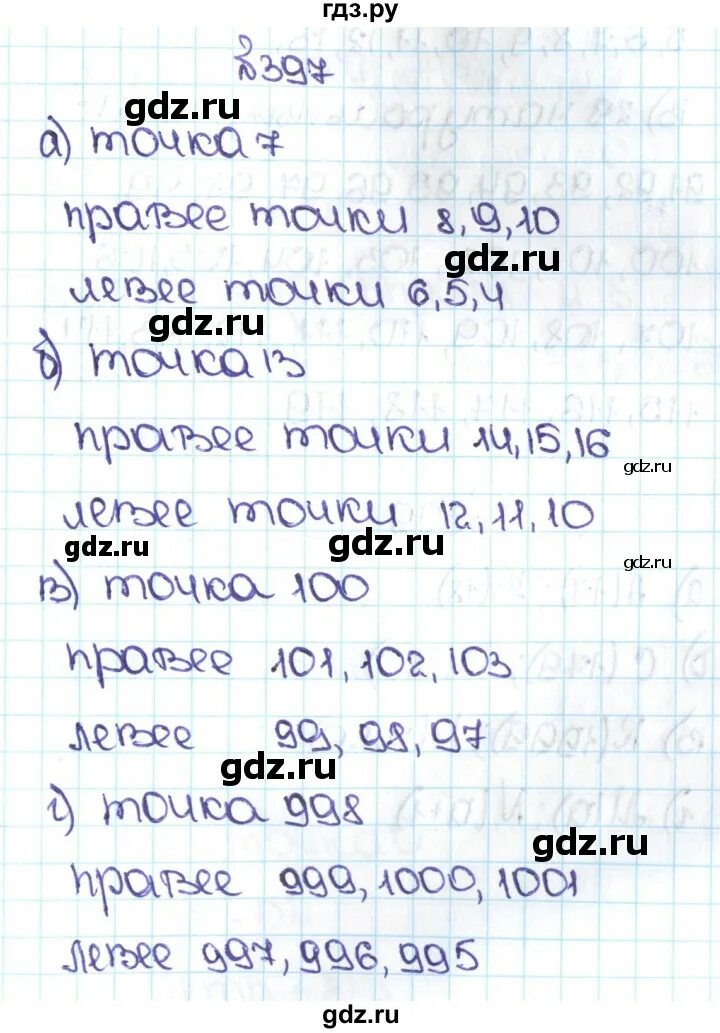 гдз.ру
№397
gdz.ru
а) точка 7
правее точки 8, 9, 10
gdz.ru
левее точки 6, 5, 4
gdz.ru
б) точка 13
правее точки 14, 15, 16
gdz.ru
левее точки 12, 11, 10
gdz.ru
gdz.ru
gdz.ru
в) точка 100
правее 101, 102, 103
левее 99, 98, 97
gdz.ru
г) точка 998
gdz.ru
правее 999, 1000, 1001
левее 997, 996, 995
gdz.ru